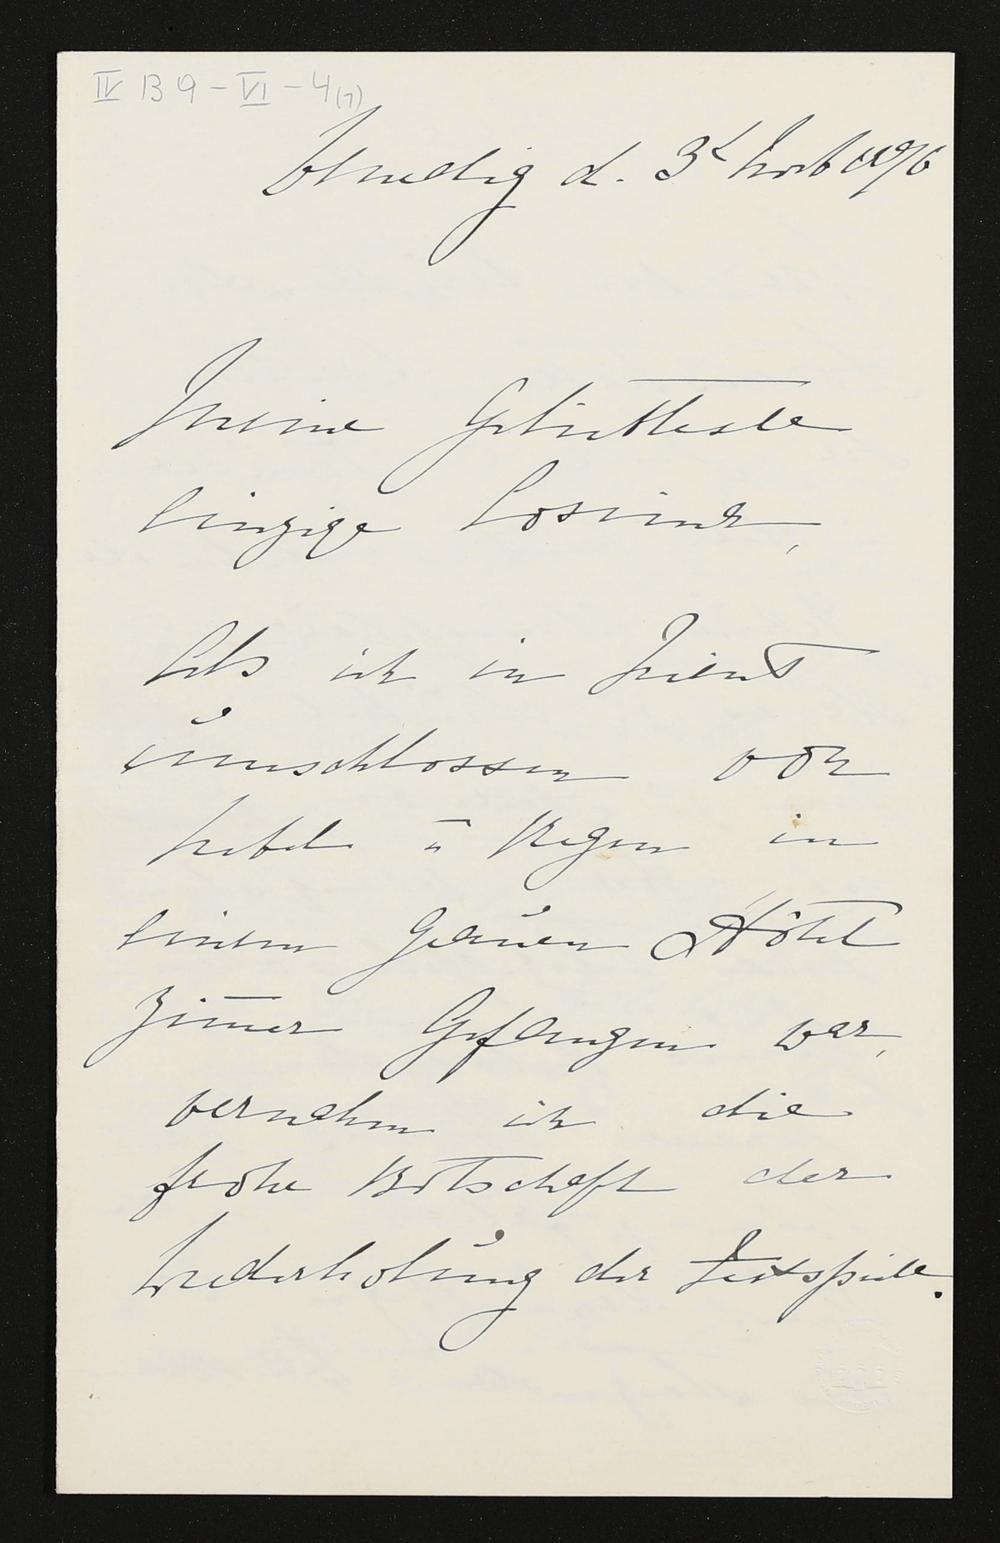 IV B 9 - VI - 4(7)
Venedig d. 3t Novb 1896
Meine Geliebteste
Einzige Cosima,
Als ich in Trient
umschlossen von
Nebel u Regen in
einem Grauen Hôtel
Zim̄er Gefangen war,
vernahm ich die
frohe Botschaft der
Wiederholung der Festspiele.